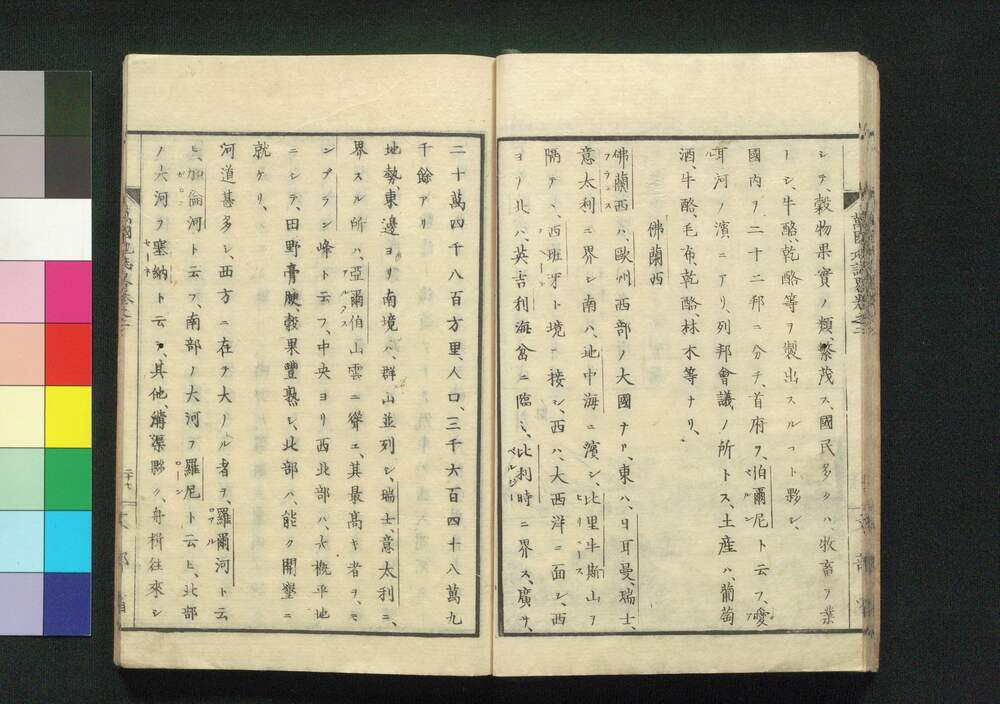 シテ、穀物果實ノ類、繁茂ス、國民多クハ、牧畜ヲ業
トシ、牛酪、乾酪等ヲ製出スルコト夥シ、
國内ヲ二十二邦ニ分チ、首府ヲ、伯爾尼ト云フ、噯
ベルン
ア
耳河ノ濱ニアリ、列邦會議ノ所トス、土産ハ、葡萄
ル
酒、牛酪、毛布、乾酪、林木等ナリ、
佛蘭西
佛蘭西ハ、歐州西部ノ大國ナリ、東ハ、日耳曼、瑞士、
フランス
意太利ニ界シ、南ハ、地中海ニ濱シ、比里牛斯山ヲ
ヒリニース
隔テヽ、西班牙ト境ニ接シ、西ハ、大西洋ニ面シ、西
ヨリ北ハ、英吉利海岔ニ臨ミ、比利時ニ界ス、廣サ、
ベルジー
二十萬四千八百方里、人口、三千六百四十八萬九
千餘アリ
地勢、東邊ヨリ南境ハ、群山並列シ、瑞士、意太利ニ、
界スル所ハ、亞爾伯山雲ニ聳エ、其最高キ者ヲ、モ
アルプス
ンブラン峰ト云フ、中央ヨリ西北部ハ、大概平地
ニシテ、田野膏腴、穀果豐熟シ、北部ハ、能ク開墾ニ
就ケリ、
河道甚多シ、西方ニ在テ大ナル者ヲ、羅爾河ト云
ロアル
ヒ、加倫河ト云フ、南部ノ大河ヲ羅尼ト云ヒ、北部
ガロン
ローン
ノ大河ヲ塞納ト云フ、其他、溝渠夥ク、舟楫往來シ
セーネ
二十七
文部省